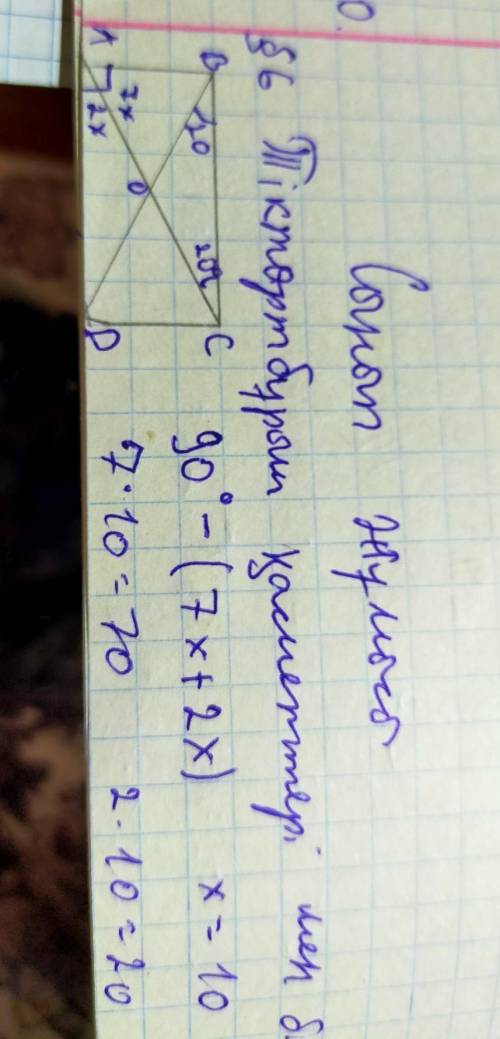 0.
Сынып жұмысы
§6 Тіктөртбұрыш қасиеттері мен б
A B C D O
7x 2x
20 20
90° - (7x + 2x) x = 10
7·10 = 70 2·10 = 20